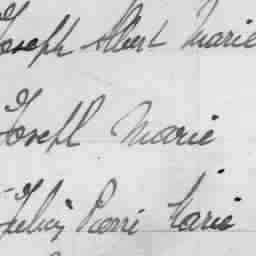 Joseph Albert Marie
Joseph Marie
Félix Pierre Marie